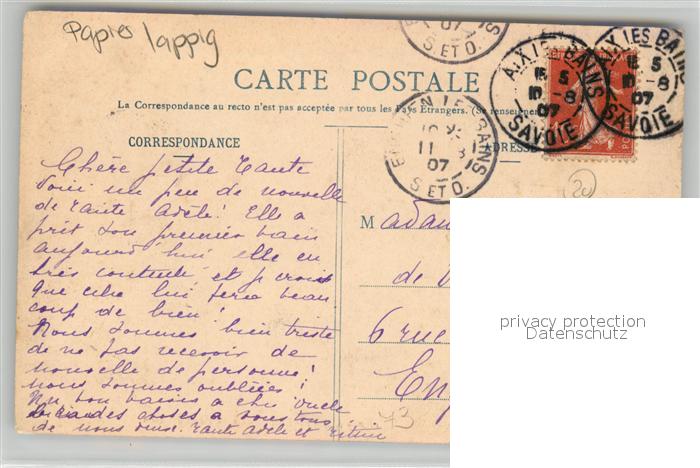 Papier lappig
CARTE POSTALE
La Correspondance au recto n'est pas acceptée par tous les Pays Étrangers. (Se renseigner
CORRESPONDANCE
ADRESSE
AIX LES BAINS
5
10 -8
07
SAVOIE
AIX LES BAINS
5
10 -8
07
SAVOIE
07
S. ET O.
EN LES BAINS
11 -8
07
S. ET O.
20
Chère petite Tante
Voici un peu de nouvelle
de tante Adèle! Elle a
prit son premier bain
aujourd'hui elle en
très contente et je crois
que cela lui fera beau
coup de bien!
Nous sommes bien triste
de ne pas recevoir de
nouvelle de personne!
nous sommes oubliées!
Un bon baisers a cher oncle
choses a vous tous
de nous deux. tante Adèle et
Madam
de
6 rue
En
43
privacy protection
Datenschutz